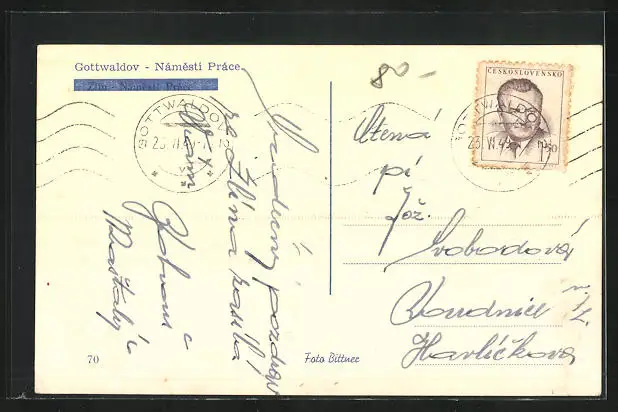 Gottwaldov - Náměstí Práce
Zlín - Náměstí Práce
80 -
ČESKOSLOVENSKO
1.50
GOTTWALDOV
23.VI.49
GOTTWALDOV
23.VI.49
Srdečný pozdrav
ze Zlína zasílá
Vám
Mašťalíř
Vtená
pí
Jož.
Svobodová
Roudnice n./L.
Havlíčkova
70
Foto Bittner